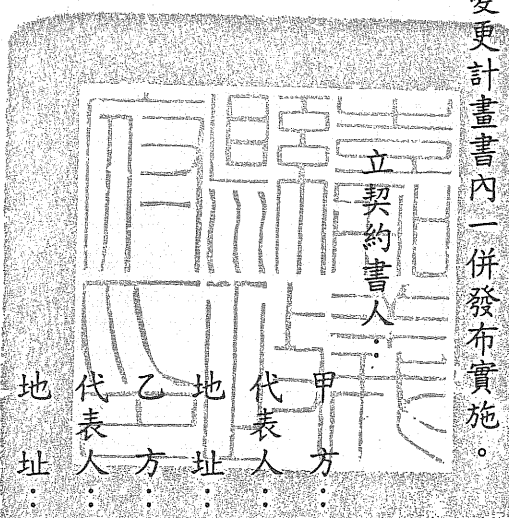 變更計畫書內一併發布實施。
立契約書人：
甲方：
代表人：
地址：
乙方：
代表人：
地址：